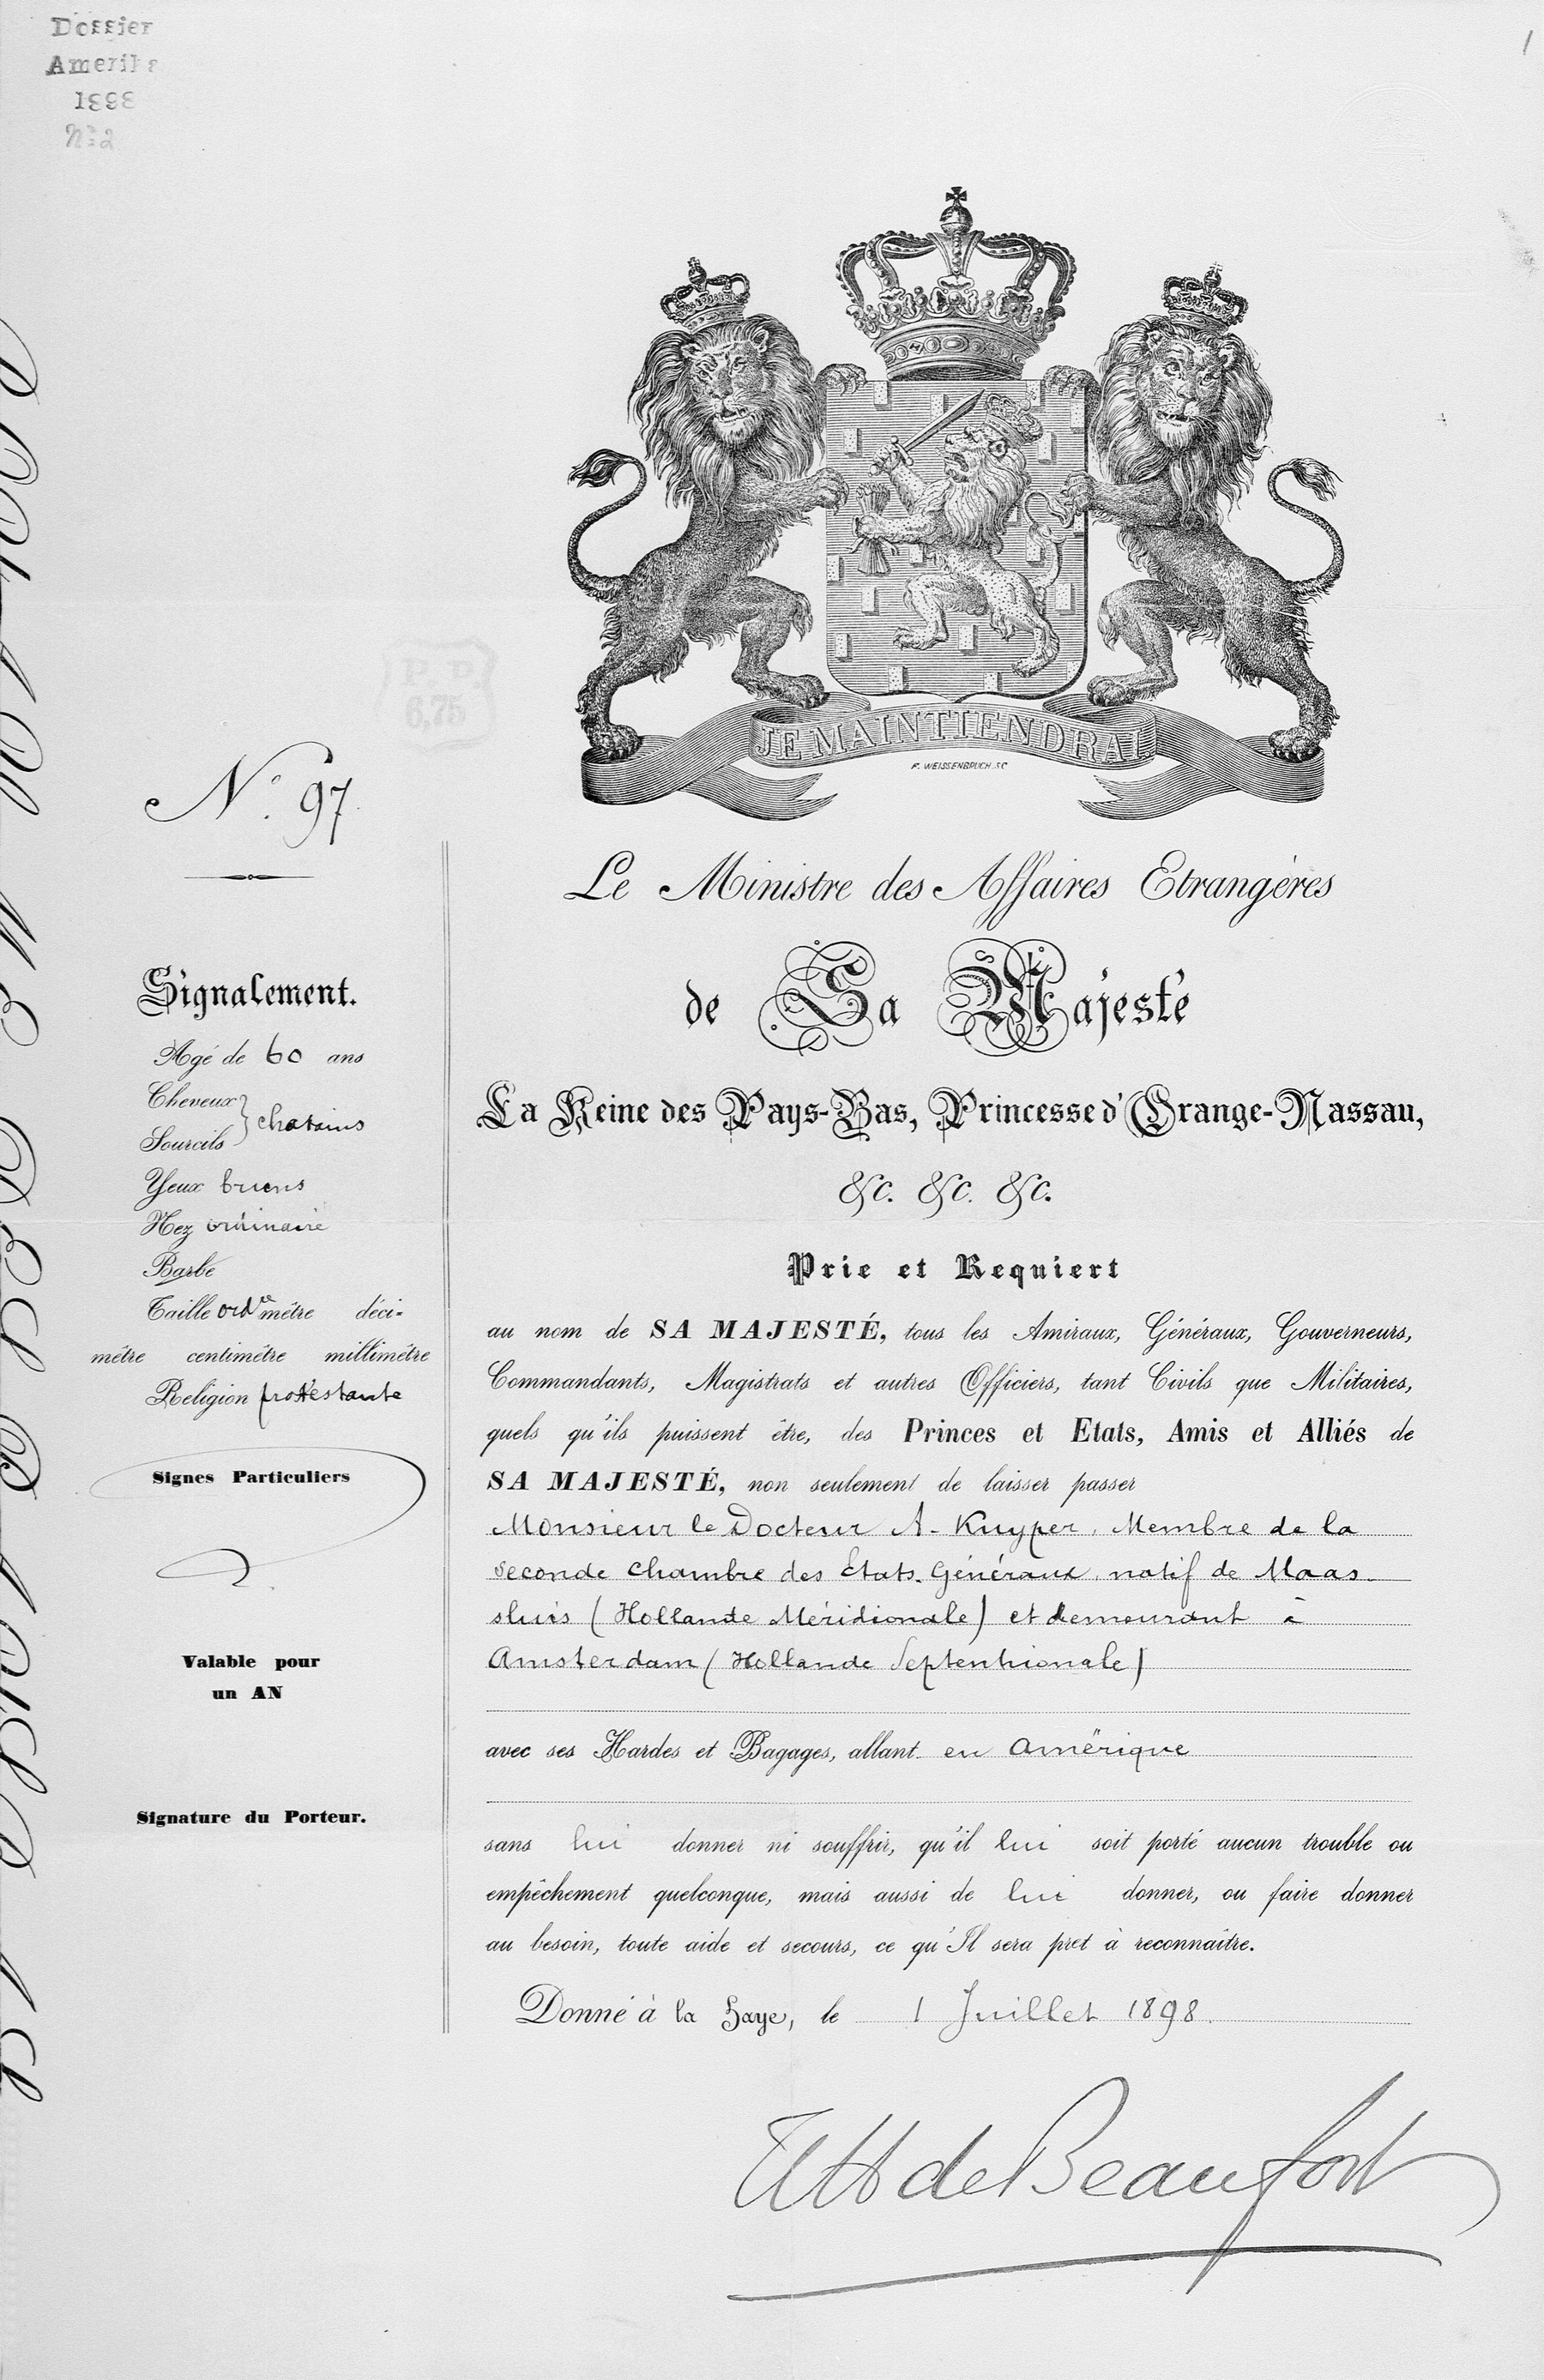 Dossier
Amerika
1898
No 2
1
JE MAINTIENDRAI
F. WEISSENBRUCH. SC
P.D
6,75
No. 97
Signalement.
Agé de 60 ans
Cheveux } chatains
Sourcils
Yeux bruns
Nez ordinaire
Barbe
Taille ordre mètre déci-
mètre centimètre millimètre
Religion protestante
Signes Particuliers
Valable pour
un AN
Signature du Porteur.
Le Ministre des Affaires Etrangères
de Sa Majesté
La Reine des Pays-Bas, Princesse d'Orange-Nassau,
&c. &c. &c.
Prie et Requiert
au nom de SA MAJESTÉ, tous les Amiraux, Généraux, Gouverneurs,
Commandants, Magistrats et autres Officiers, tant Civils que Militaires,
quels qu'ils puissent être, des Princes et Etats, Amis et Alliés de
SA MAJESTÉ, non seulement de laisser passer
Monsieur le Docteur A. Kuyper, Membre de la
seconde Chambre des Etats-Généraux, natif de Maas-
sluis (Hollande Méridionale) et demeurant à
Amsterdam (Hollande Septentrionale)
avec ses Hardes et Bagages, allant en Amérique
sans lui donner ni souffrir, qu'il lui soit porté aucun trouble ou
empêchement quelconque, mais aussi de lui donner, ou faire donner
au besoin, toute aide et secours, ce qu'Il sera prêt à reconnaître.
Donné à la Haye, le 1 Juillet 1898.
WH de Beaufort